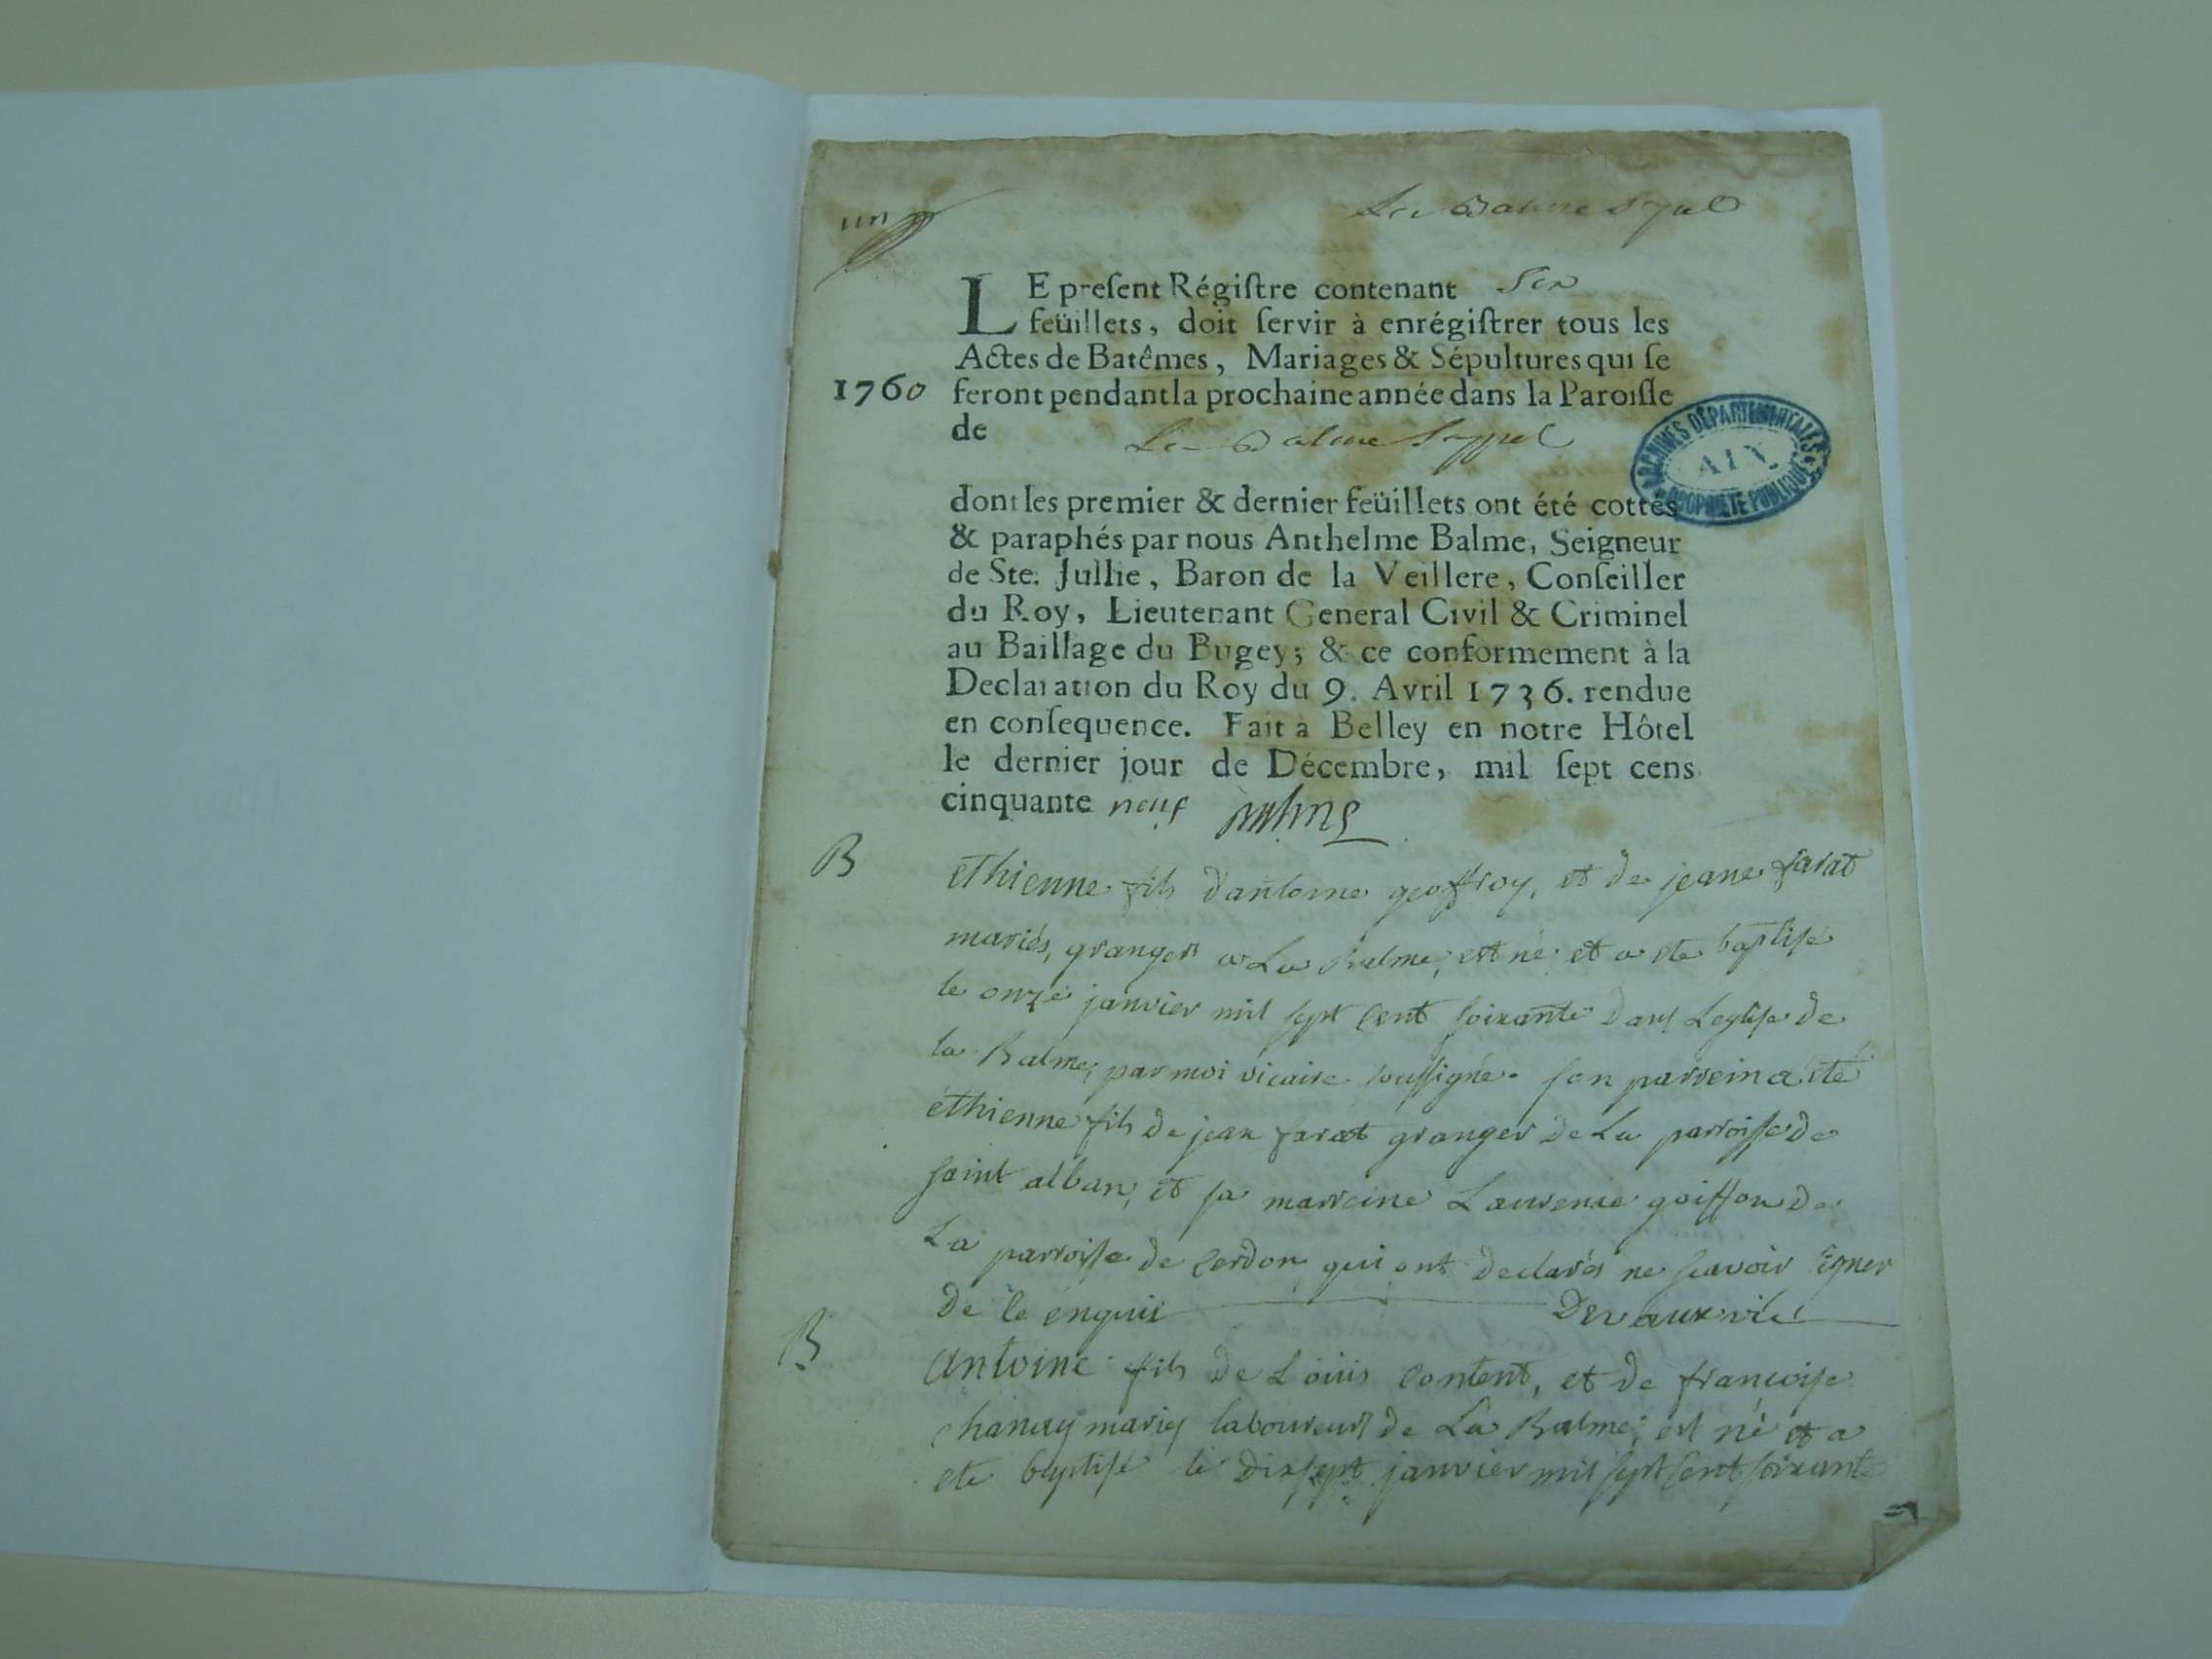 un
La Balme Sapel
LE preſent Régiſtre contenant Six
feüillets, doit ſervir à enrégiſtrer tous les
Actes de Batêmes, Mariages & Sépultures qui ſe
1760 feront pendant la prochaine année dans la Paroiſſe
de La Balme Sappel
ARCHIVES DÉPARTEMENTALES
AIN
PROPRIÉTÉ PUBLIQUE
dont les premier & dernier feüillets ont été cottés
& paraphés par nous Anthelme Balme, Seigneur
de Ste. Jullie, Baron de la Veillere, Conſeiller
du Roy, Lieutenant General Civil & Criminel
au Baillage du Bugey; & ce conformement à la
Declaration du Roy du 9. Avril 1736. rendue
en conſequence. Fait à Belley en notre Hôtel
le dernier jour de Décembre, mil ſept cens
cinquante neuf Balme
B ethienne fils d'antoine geoffroy, et de jeane farat
mariés, grangers a La Balme, est né et a ete baptisé
le onze janvier mil sept cent soixante dans Leglise de
la Balme, par moi vicaire soussigné. son parrein a été
éthienne fils de jean farat granger de La parroisse de
saint alban, et sa marreine Laurence goiffon de
La parroisse de cerdon qui ont declarés ne scavoir signer
de ce enquis Devaux vic
B antoine fils de Loüis content, et de francoise
chanay mariés laboureurs de La Balme, est né et a
ete baptisé le dixsept janvier mil sept cent soixante